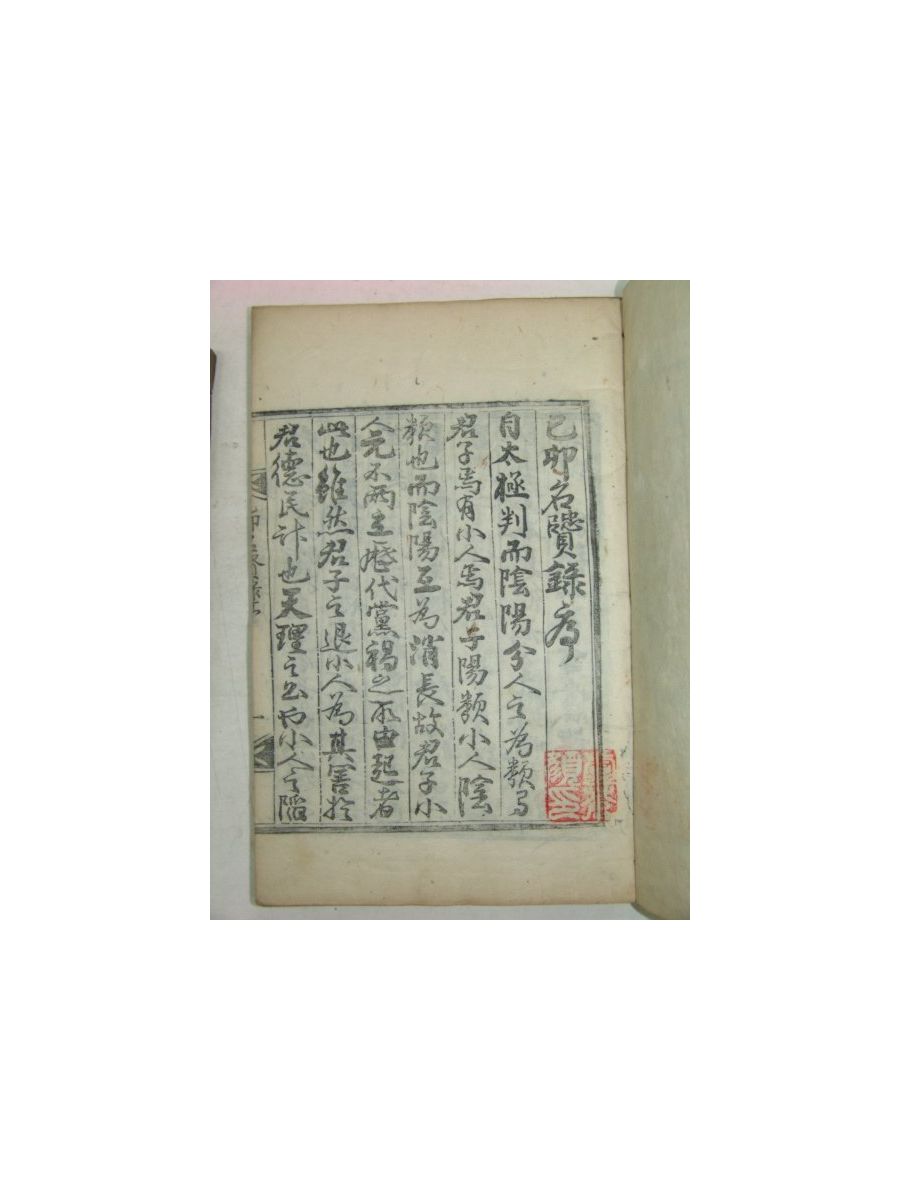 己卯名賢錄序
自太極判而陰陽分人之為類有
君子焉有小人焉君子陽類小人陰
類也而陰陽互為消長故君子小
人元不兩立歷代黨禍之所由起者
此也雖然君子之退小人為其害於
君德民計也天理之公而小人之陷